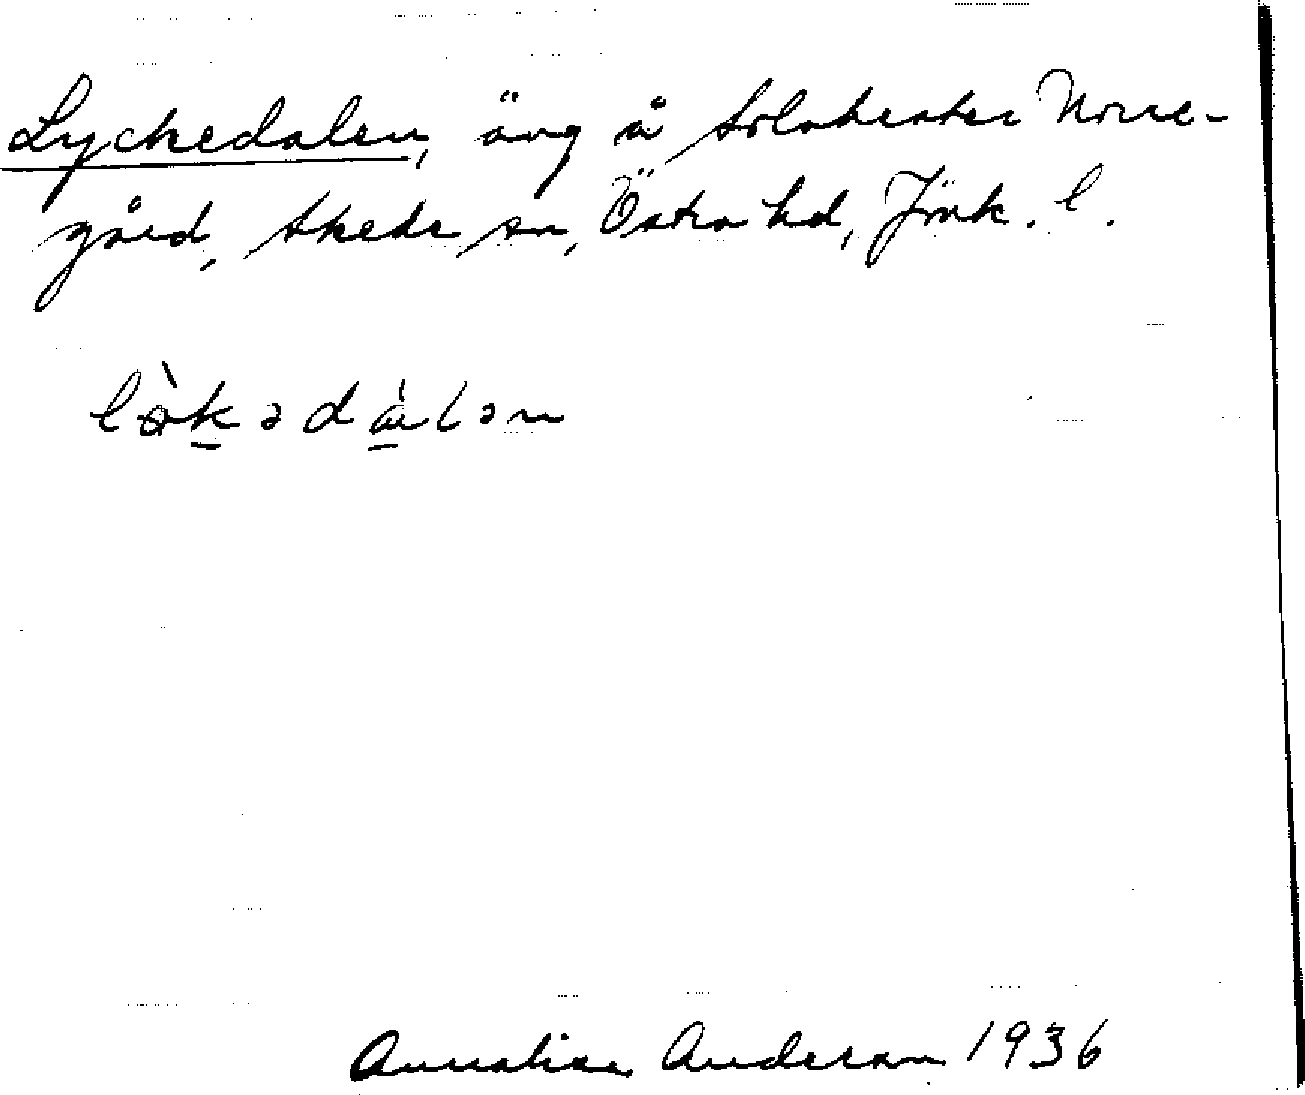 Lyckedalen, äng å Solaberka Norre-
gård, Skede sn, Östra hd, Jönk. l.
lø̀kədálən
Annalisa Anderson 1936